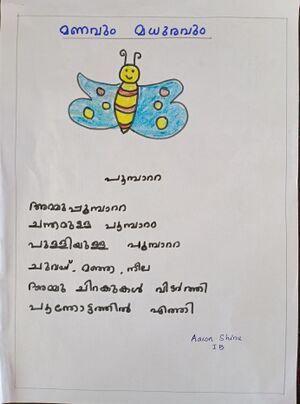 മണവും മധുരവും
പൂമ്പാറ്റ
അമ്മുപൂമ്പാറ്റ
ചന്തമുള്ള പൂമ്പാറ്റ
പുള്ളിയുള്ള പൂമ്പാറ്റ
ചുവപ്പ്, മഞ്ഞ, നീല
അമ്മു ചിറകുകൾ വിടർത്തി
പൂന്തോട്ടത്തിൽ എത്തി
Aaron Shine
I B